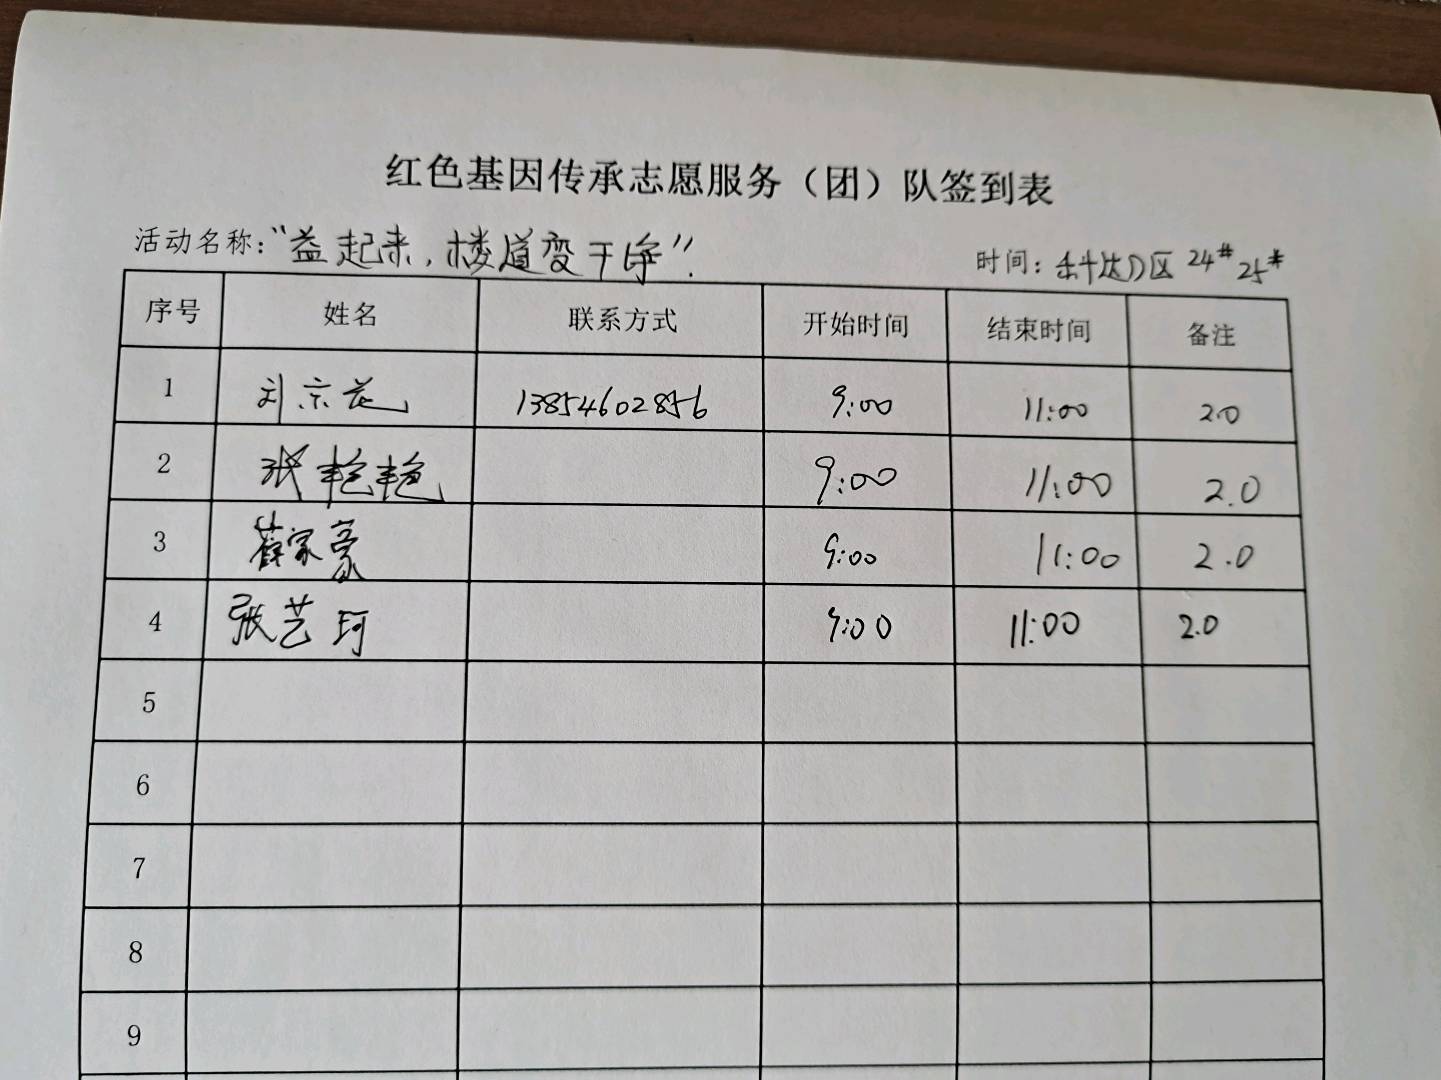 红色基因传承志愿服务（团）队签到表
活动名称：“益起来，楼道变干净”. 时间： 区 24# 25#
序号 姓名 联系方式 开始时间 结束时间 备注
1 刘宗花 13854602856 9:00 11:00 2.0
2 张艳艳 9:00 11:00 2.0
3 薛家豪 9:00 11:00 2.0
4 张艺珂 9:00 11:00 2.0
5
6
7
8
9